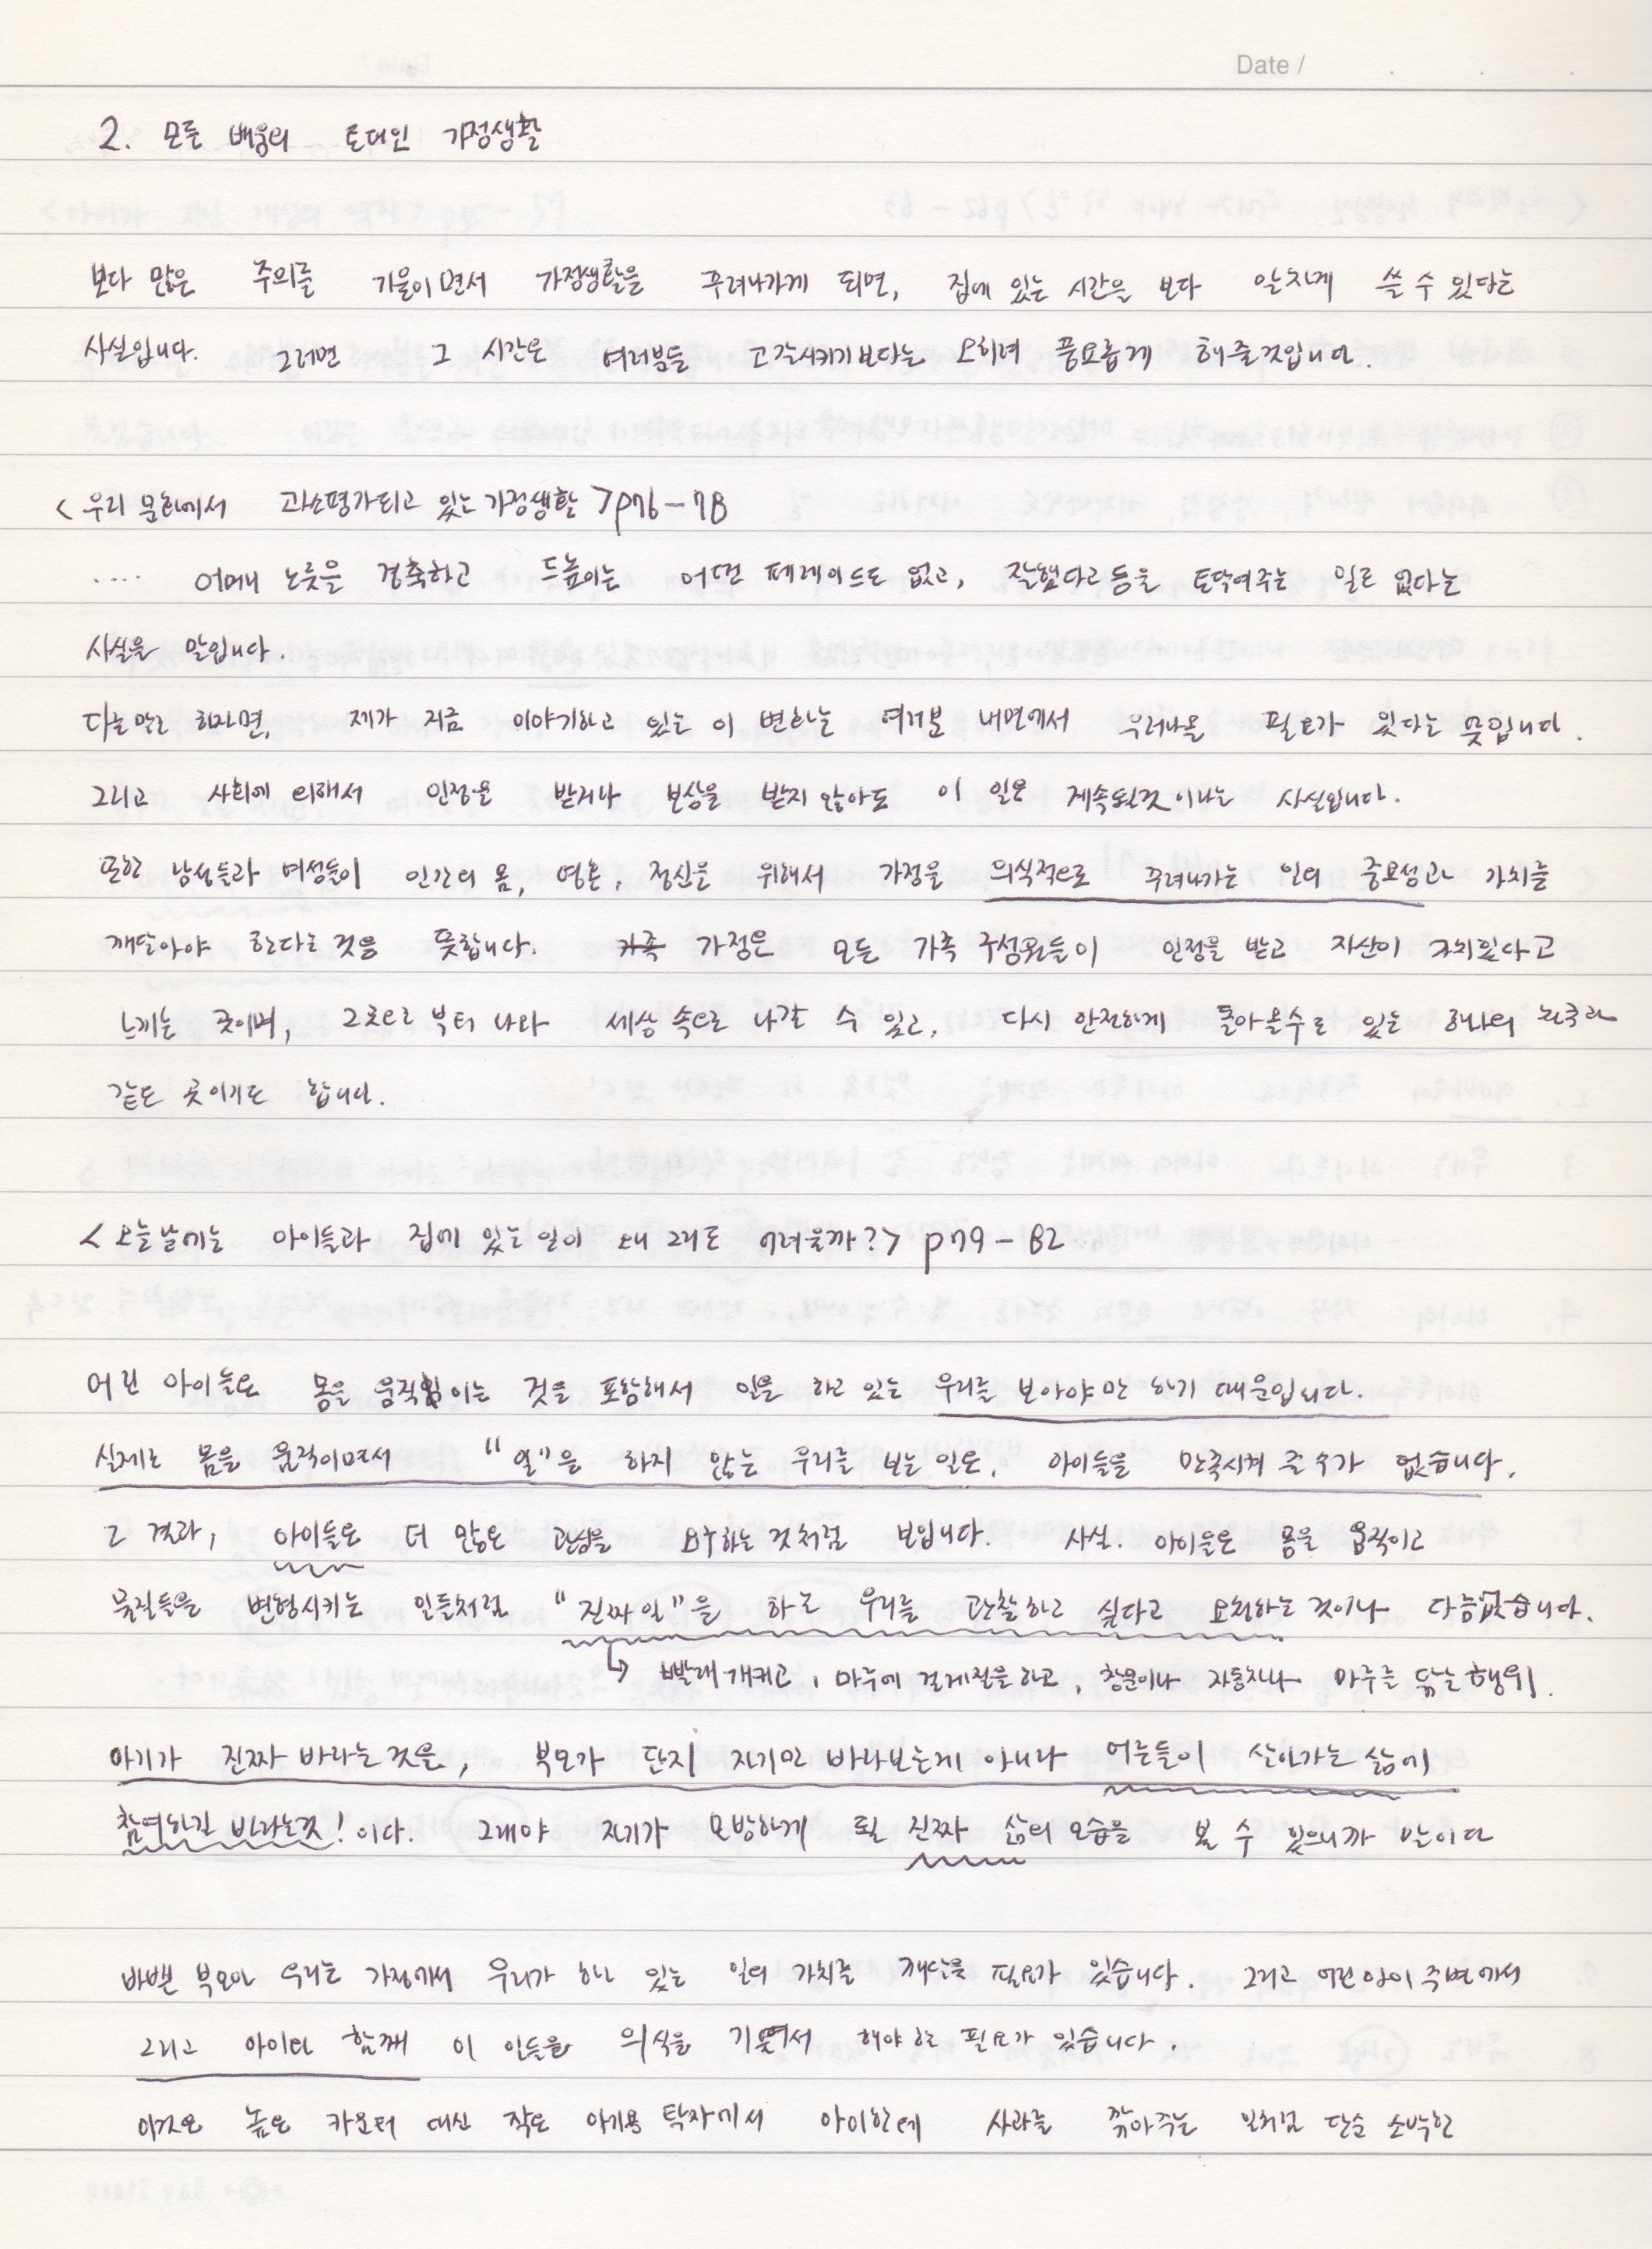 Date /
2. 모든 배움의 토대인 가정생활
보다 많은 주의를 기울이면서 가정생활을 꾸려나가게 되면, 집에 있는 시간을 보다 알차게 쓸 수 있다는
사실입니다. 그러면 그 시간은 여러분들 고갈시키기 보다는 오히려 풍요롭게 해줄것입니다.
< 우리 문화에서 과소평가되고 있는 가정생활 > p76 - 78
.... 어머니 노릇을 경축하고 드높이는 어떤 퍼레이드도 없고, 잘했다고 등을 토닥여주는 일도 없다는
사실을 말입니다.
다른말로 하자면, 제가 지금 이야기하고 있는 이 변화는 여러분 내면에서 우러나올 필요가 있다는 뜻입니다.
그리고 사회에 의해서 인정을 받거나 보상을 받지 않아도 이 일은 계속될것 이라는 사실입니다.
또한 남성들과 여성들이 인간의 몸, 영혼, 정신을 위해서 가정을 의식적으로 꾸려나가는 일의 중요성과 가치를
깨달아야 한다는 것을 뜻합니다. 가족 가정은 모든 가족 구성원들이 인정을 받고 자신이 가치있다고
느끼는 곳이며, 그곳으로 부터 나와 세상 속으로 나갈 수 있고, 다시 안전하게 돌아올수도 있는 하나의
같은 곳이기도 합니다.
< 오늘날에는 아이들과 집에 있는 일이 왜 그리도 어려울까? > p79 - 82
어린 아이들은 몸을 움직이는 것을 포함해서 일을 하고 있는 우리를 보아야만 하기 때문입니다.
실제로 몸을 움직이면서 "일"을 하지 않는 우리를 보는 일은, 아이들을 만족시켜 줄 수가 없습니다.
그 결과, 아이들은 더 많은 관심을 요구하는 것처럼 보입니다. 사실. 아이들은 몸을 움직이고
물질들을 변형시키는 일들처럼 "진짜 일"을 하는 우리를 관찰하고 싶다고 요청하는 것이나 다름없습니다.
↳ 빨래 개키고, 마루에 걸레질을 하고, 창문이나 자동차나 마루를 닦는 행위.
아기가 진짜 바라는 것은, 부모가 단지 자기만 바라보는게 아니라 어른들이 살아가는 삶에
참여하길 바라는것! 이다. 그래야 자기가 모방하게 될 진짜 삶의 모습을 볼 수 있으니까 말이다
바쁜 부모인 우리는 가정에서 우리가 하고 있는 일의 가치를 깨달을 필요가 있습니다. 그리고 어린 아이 주변에서
그리고 아이와 함께 이 일들을 의식을 기울여서 해야 할 필요가 있습니다.
이것은 높은 카운터 대신 작은 아기용 탁자에서 아이한테 사과를 깎아주는 일처럼 단순 소박한